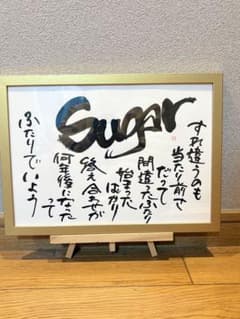 Sugar
すれ違うのも
当たり前で
だって
間違ったふたり
始まった
ばかり
答え合わせが
何年後になった
って
ふたりでいよう